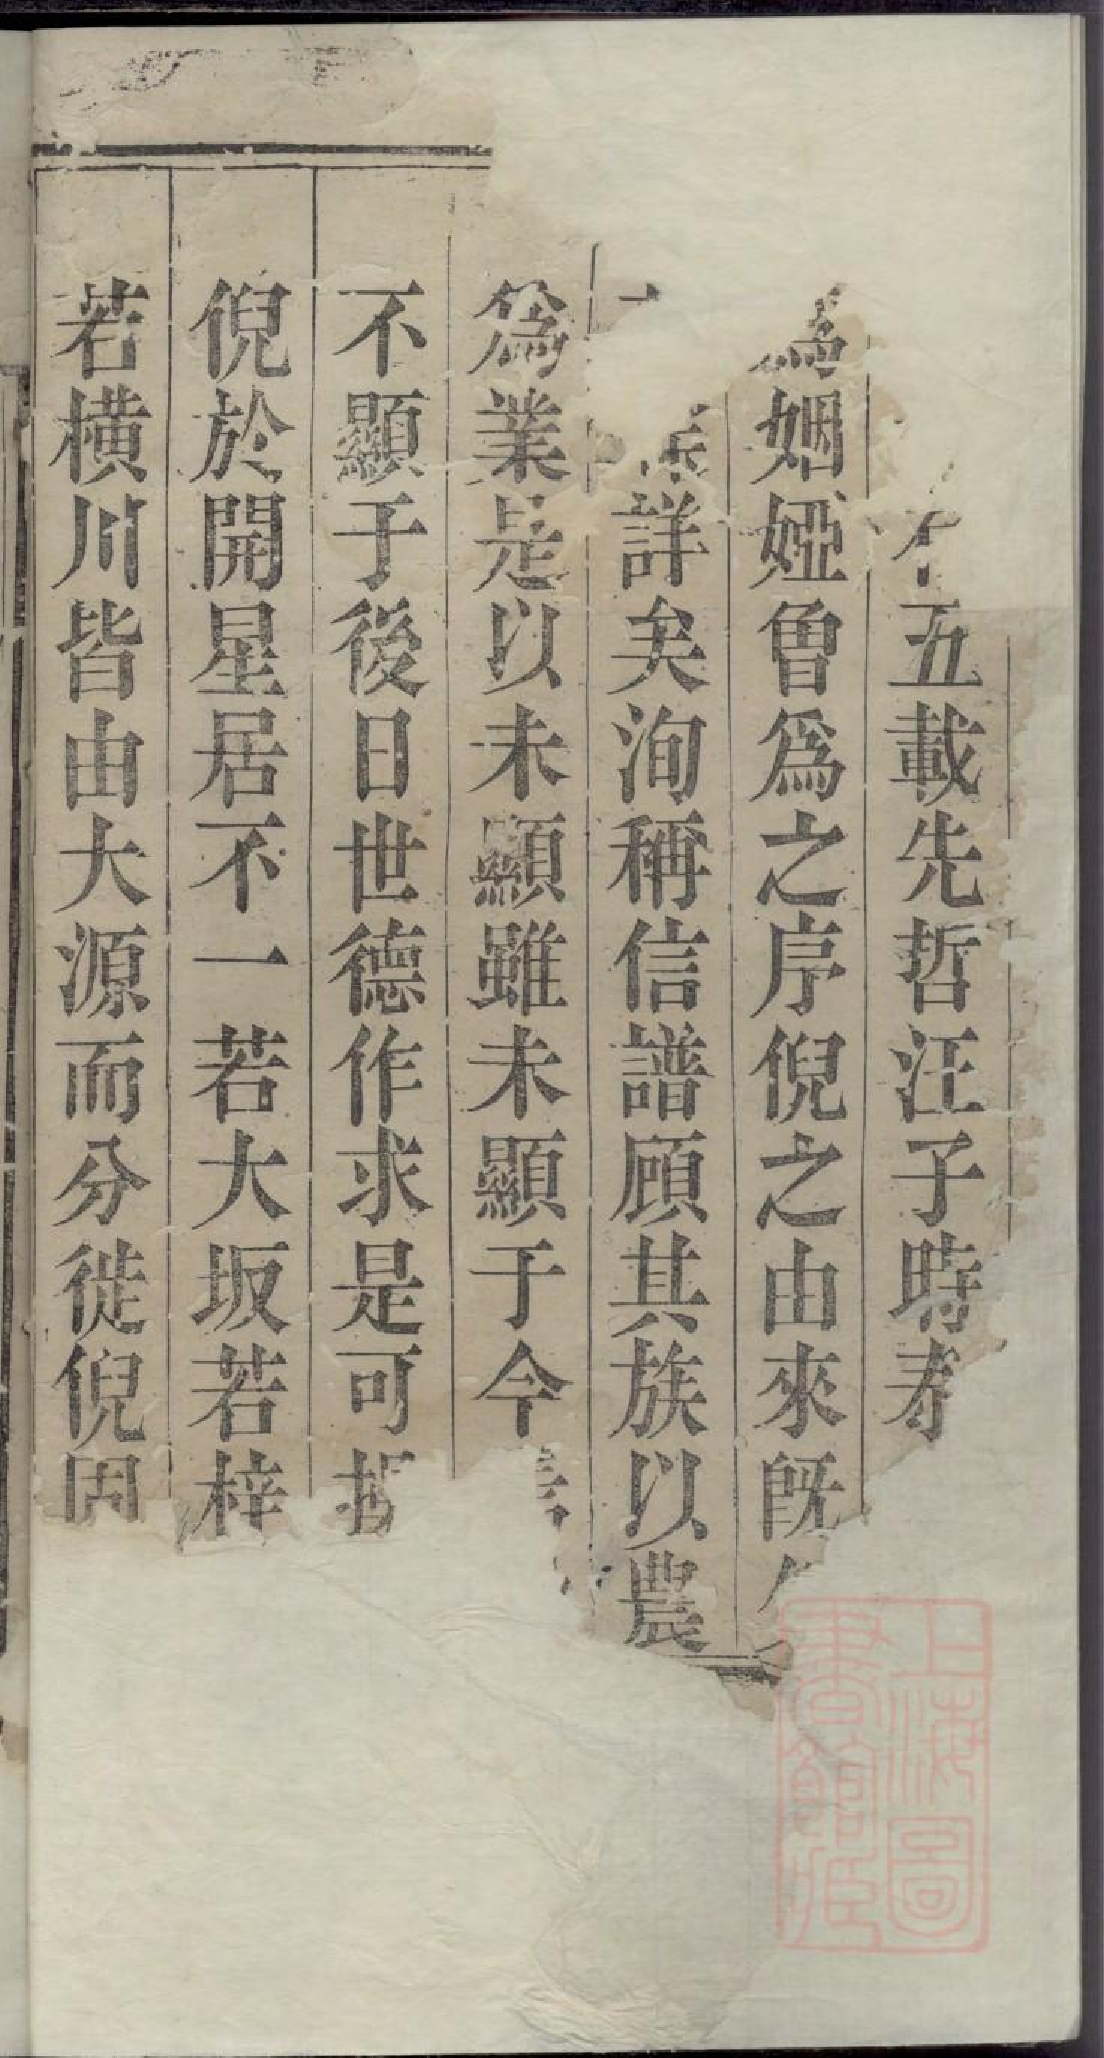 五載先哲汪子時
爲姻婭曾爲之序倪之由來既
詳矣洵稱信譜顧其族以農
爲業是以未顯雖未顯于今
不顯于後日世德作求是可
倪於開星居不一若大坂若梓
若橫川皆由大源而分徙倪固
上海圖
書館藏